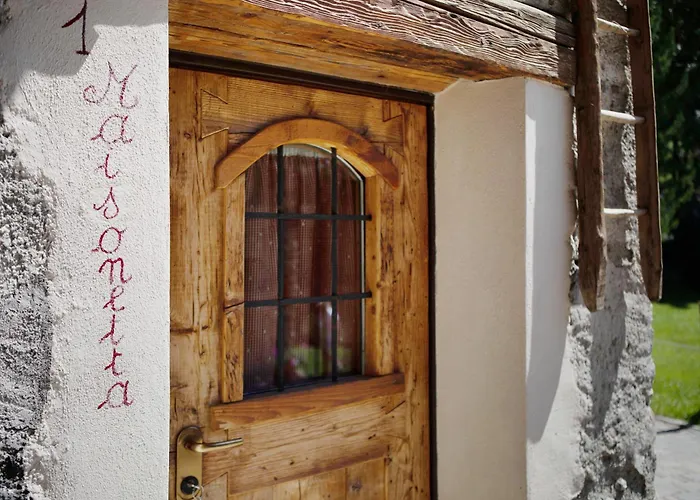 1
Maisonetta